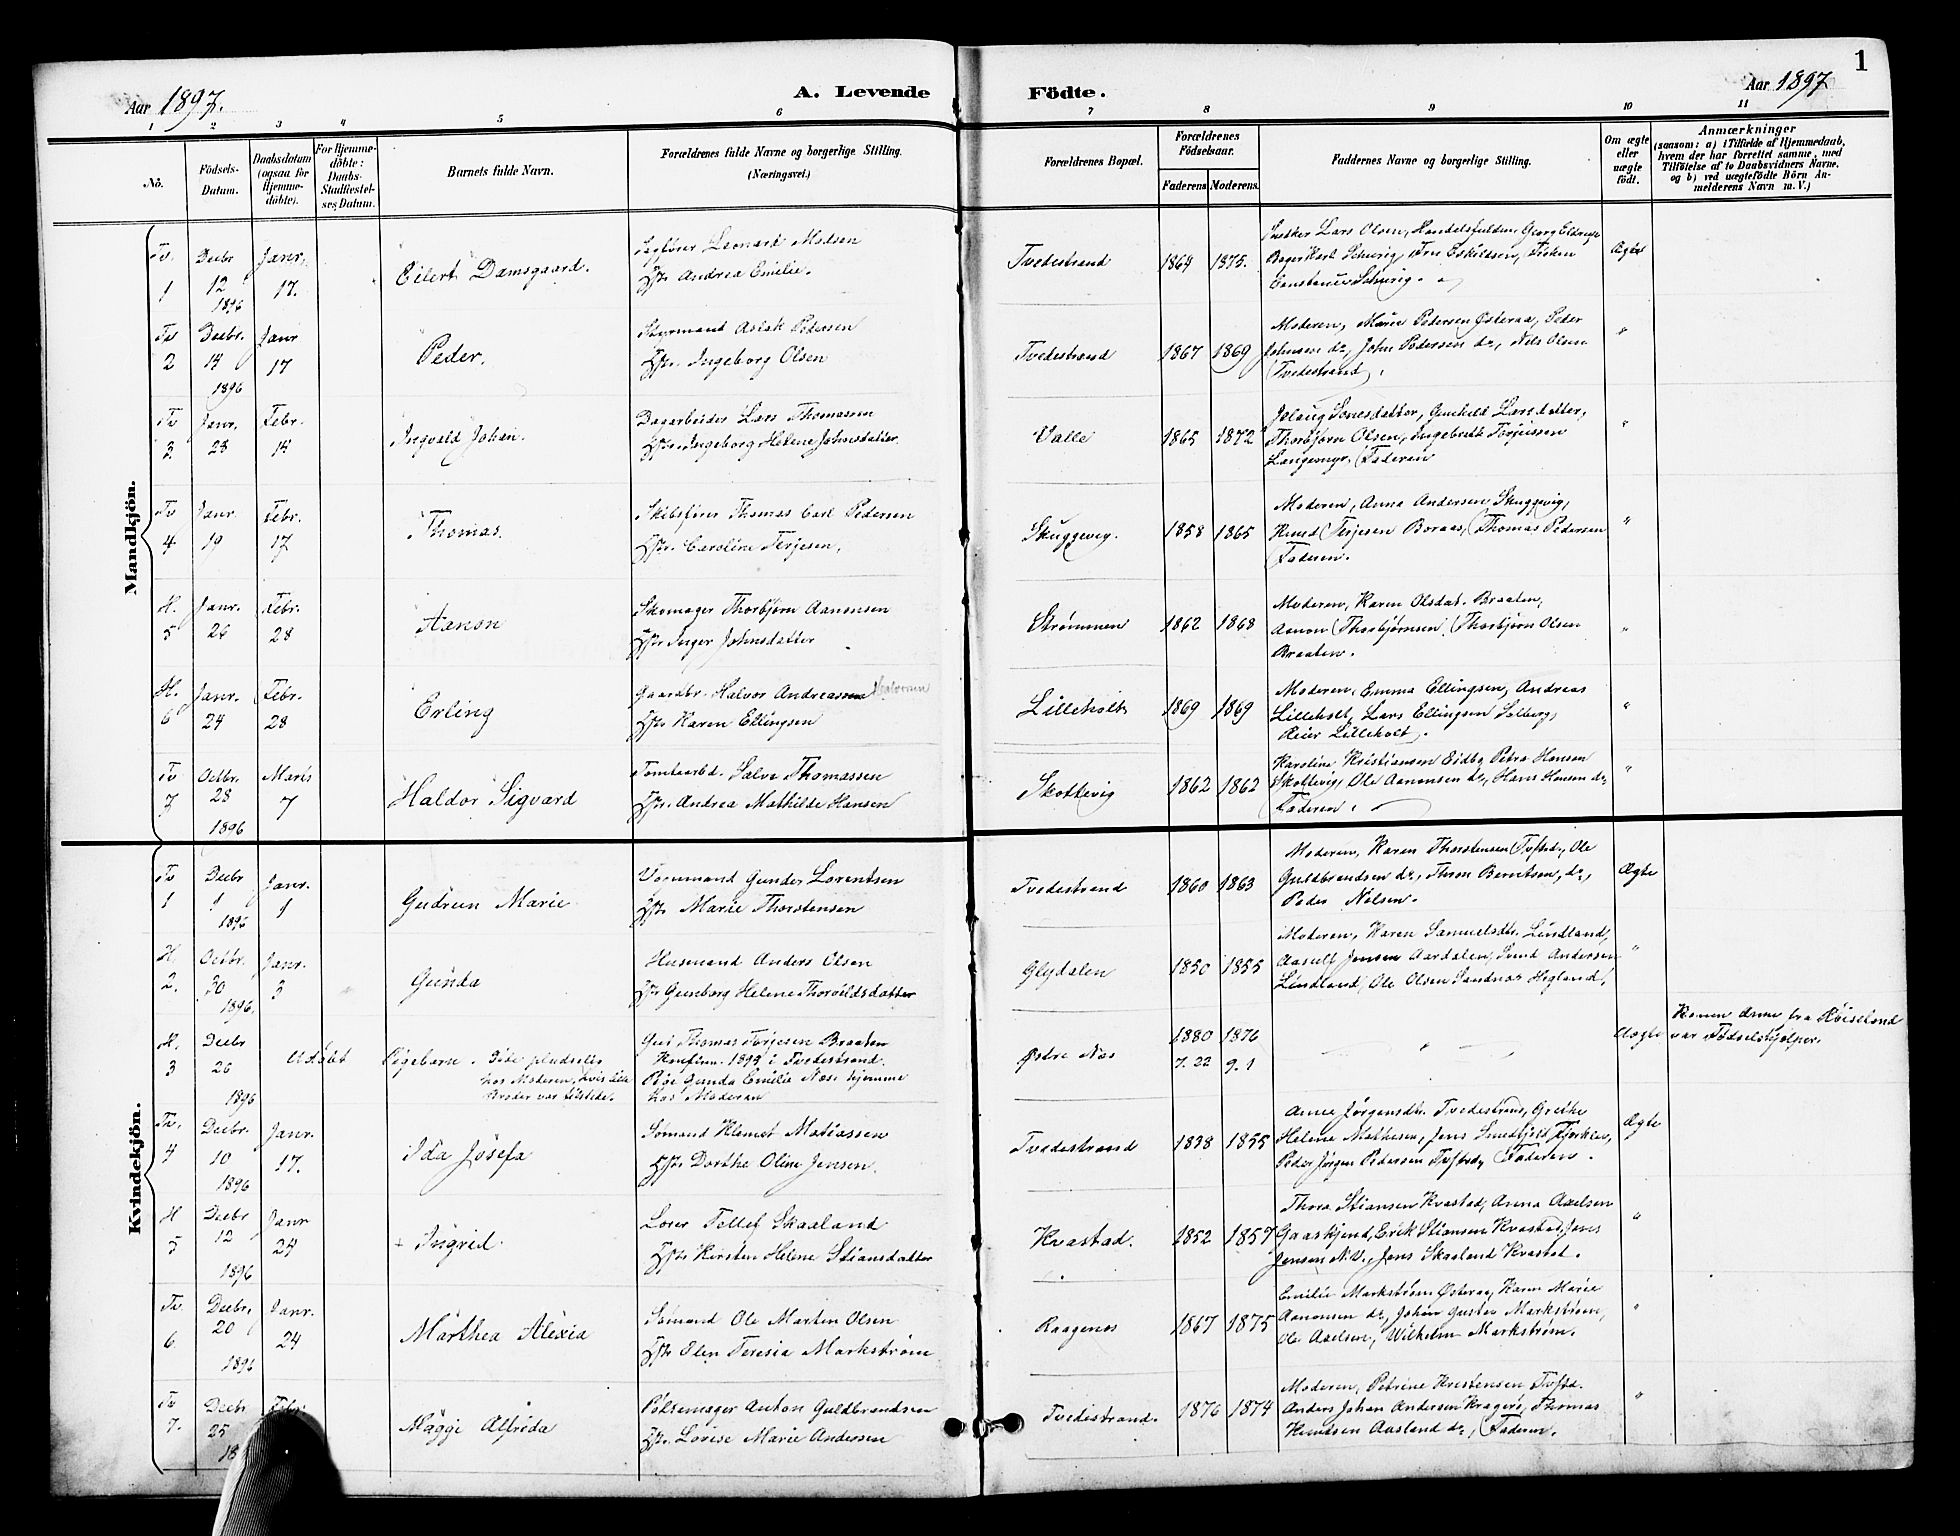 1
Aar 1897.
A. Levende
Födte.
Aar 1897
1 2 3 4 5 6 7 8 9 10 11
No.
Födsels-
Datum.
Daabsdatum
(ogsaa for
Hjemme-
döbte).
For Hjemme-
döbte:
Daabs-
Stadfæstel-
ses Datum.
Barnets fulde Navn.
Forældrenes fulde Navne og borgerlige Stilling.
(Næringsvei.)
Forældrenes Bopæl.
Forældrenes
Födselsaar.
Faderens Moderens.
Faddernes Navne og borgerlige Stilling.
Om ægte
eller
uægte
födt.
Anmærkninger
(saasom: a) i Tilfælde af Hjemmedaab,
hvem der har forrettet samme, med
Tilföielse af to Daabsvidners Navne,
og b) ved uægtefödte Börn An-
melderens Navn m. V.)
Mandkjön.
Tv. 1
Decbr 12 1896
Janr. 17.
Eilert Damsgaard.
Sagfører Leonard Madsen
Hstr. Andrea Emilie.
Tvedestrand
1864 1875.
Snedker Lars Olsen, Georg
Bager Karl Schurig, Fru Eskildsen, Frøken
Schurig.
Ægte
Tv 2
Decbr. 14 1896
Janr 17
Peder.
Styrmand Aslak Pedersen
Hstr. Ingeborg Olsen
Tvedestrand
1867 1869
Moderen, Marie Pedersen Østeraa, Peder
Johnsen do, John Pedersen do, Nils Olsen
Tvedestrand.
"
Tv 3.
Janr. 23
Febr. 14
Ingvald Johan.
Dagarbeider Lars Thomassen
Hstr. Ingeborg Helene Johnsdatter
Valle
1865 1872
Gunhild Larsdatter,
Thorbjørn Olsen, Ingebreth Torjussen
Langemyr, Faderen
"
Tv 4
Janr. 19
Febr. 17
Thomas.
Skibsfører Thomas Carl Pedersen
Hstr. Caroline Terjesen,
Skuggevig.
1858 1865
Moderen, Anna Andersen Skuggevig,
Knud Terjesen Boraas, Thomas Pedersen
Faderen.
"
H. 5
Janr. 26
Febr. 28
Aanon
Skomager Thorbjørn Aanonsen
Hstr Inger Johnsdatter
Strømmen
1862 1868
Moderen, Karen Olsdat. Braaten,
Aanon Thorbjørnsen, Thorbjørn Olsen
Braaten.
"
H. 6
Janr. 24
Febr. 28
Erling
Gaardbr. Halvor Andreassen Halvorsen
Hstr Karen Ellingsen
Lilleholt
1869 1869
Moderen, Emma Ellingsen, Andreas
Lilleholt, Lars Ellingsen Solberg,
Reier Lilleholt.
"
Tv 7
Octbr. 28 1896
Marts 7
Haldor Sigvard
Tomtearbd. Salve Thomassen
Hstr. Andrea Mathilde Hansen
Skottevig
1862 1862
Karoline Kristiansen Eidbo, Petra Hansen
Skottevig, Ole Aanonsen do, Hans Hansen do,
Faderen.
"
Kvindekjön.
Tv 1
Decbr 1 1896
Janr. 1
Gudrun Marie
Gunder Lorentsen
Hstr Marie Thorstensen
Tvedestrand
1860 1863
Moderen, Karen Thorstensen Tvstrd., Ole
Guldbrandsen do, Thron Berntsen, do,
Peder Nilsen.
Ægte
H. 2.
Octbr. 30 1896.
Janr. 3
Gunda
Husmand Anders Olsen
Hstr Gunborg Helene Thorvildsdatter
Glydalen
1850 1855
Moderen, Karen Samuelsdtr. Lindland,
Aasulf Jensen Aardalen, Svend Andersen
Lindland, Ole Olsen Sandnas Hegland.
"
H. 3
Decbr 26 1896
Udøbt
Pigebarn. Døde pludselig
hos Moderen,
Broder var tilstede.
Gut Thomas Torjesen Braaten
Konfirm. 1894 i Tvedestrand.
Pige Gunda Emilie Næs hjemme
hos Moderen
Østre Næs
1880 1876
7. 22 9. 1
"
Uægte
Konen Anne fra Røiseland
var Fødselshjælper.
Tv. 4
Decbr. 10 1896
Janr. 17.
Ida Josefa
Sømand Klemet Matiassen
Hstr. Dorthe Oline Jensen.
Tvedestrand
1838 1855
Anne Jørgensdtr. Tvedestrand, Grethe
Helene Mathesen, Jens Smedsfjeld
Peder Jørgen Pedersen Tvstrd, Faderen.
Ægte
H 5
Decbr 12 1896
Janr 24
+ Ingrid.
Tellef Skaaland
Hstr Kirsten Helene Stiansdatter
Kvastad.
1852 1857
Thora Stiansen Kvastad, Anna Axelsen
Gaaskjend, Erik Stiansen Kvastad, Jens
Jensen N.V., Jens Skaaland Kvastad.
"
Tv. 6
Decbr. 20 1896
Janr. 24
Marthea Alexia
Sømand Ole Martin Olsen
Hstr Elen Teresia Markstrøm
Raagenes
1867 1875
Emilie Markstrøm Østeraa, Karen Marie
Aanonsen do, Johan Gustav Markstrøm,
Ole Axelsen, Wilhelm Markstrøm.
"
Tv 7.
Decbr 25 18
Febr.
Maggi Alfrida
Pølsemager Anton Guldbrandsen
Hstr. Lovise Marie Andersen
Tvedestrand.
1876 1874
Moderen, Petrine Kristensen Tvstrd.
Anders Johan Andersen Kragerø, Thomas
Knudsen Aasland do, Faderen.
"